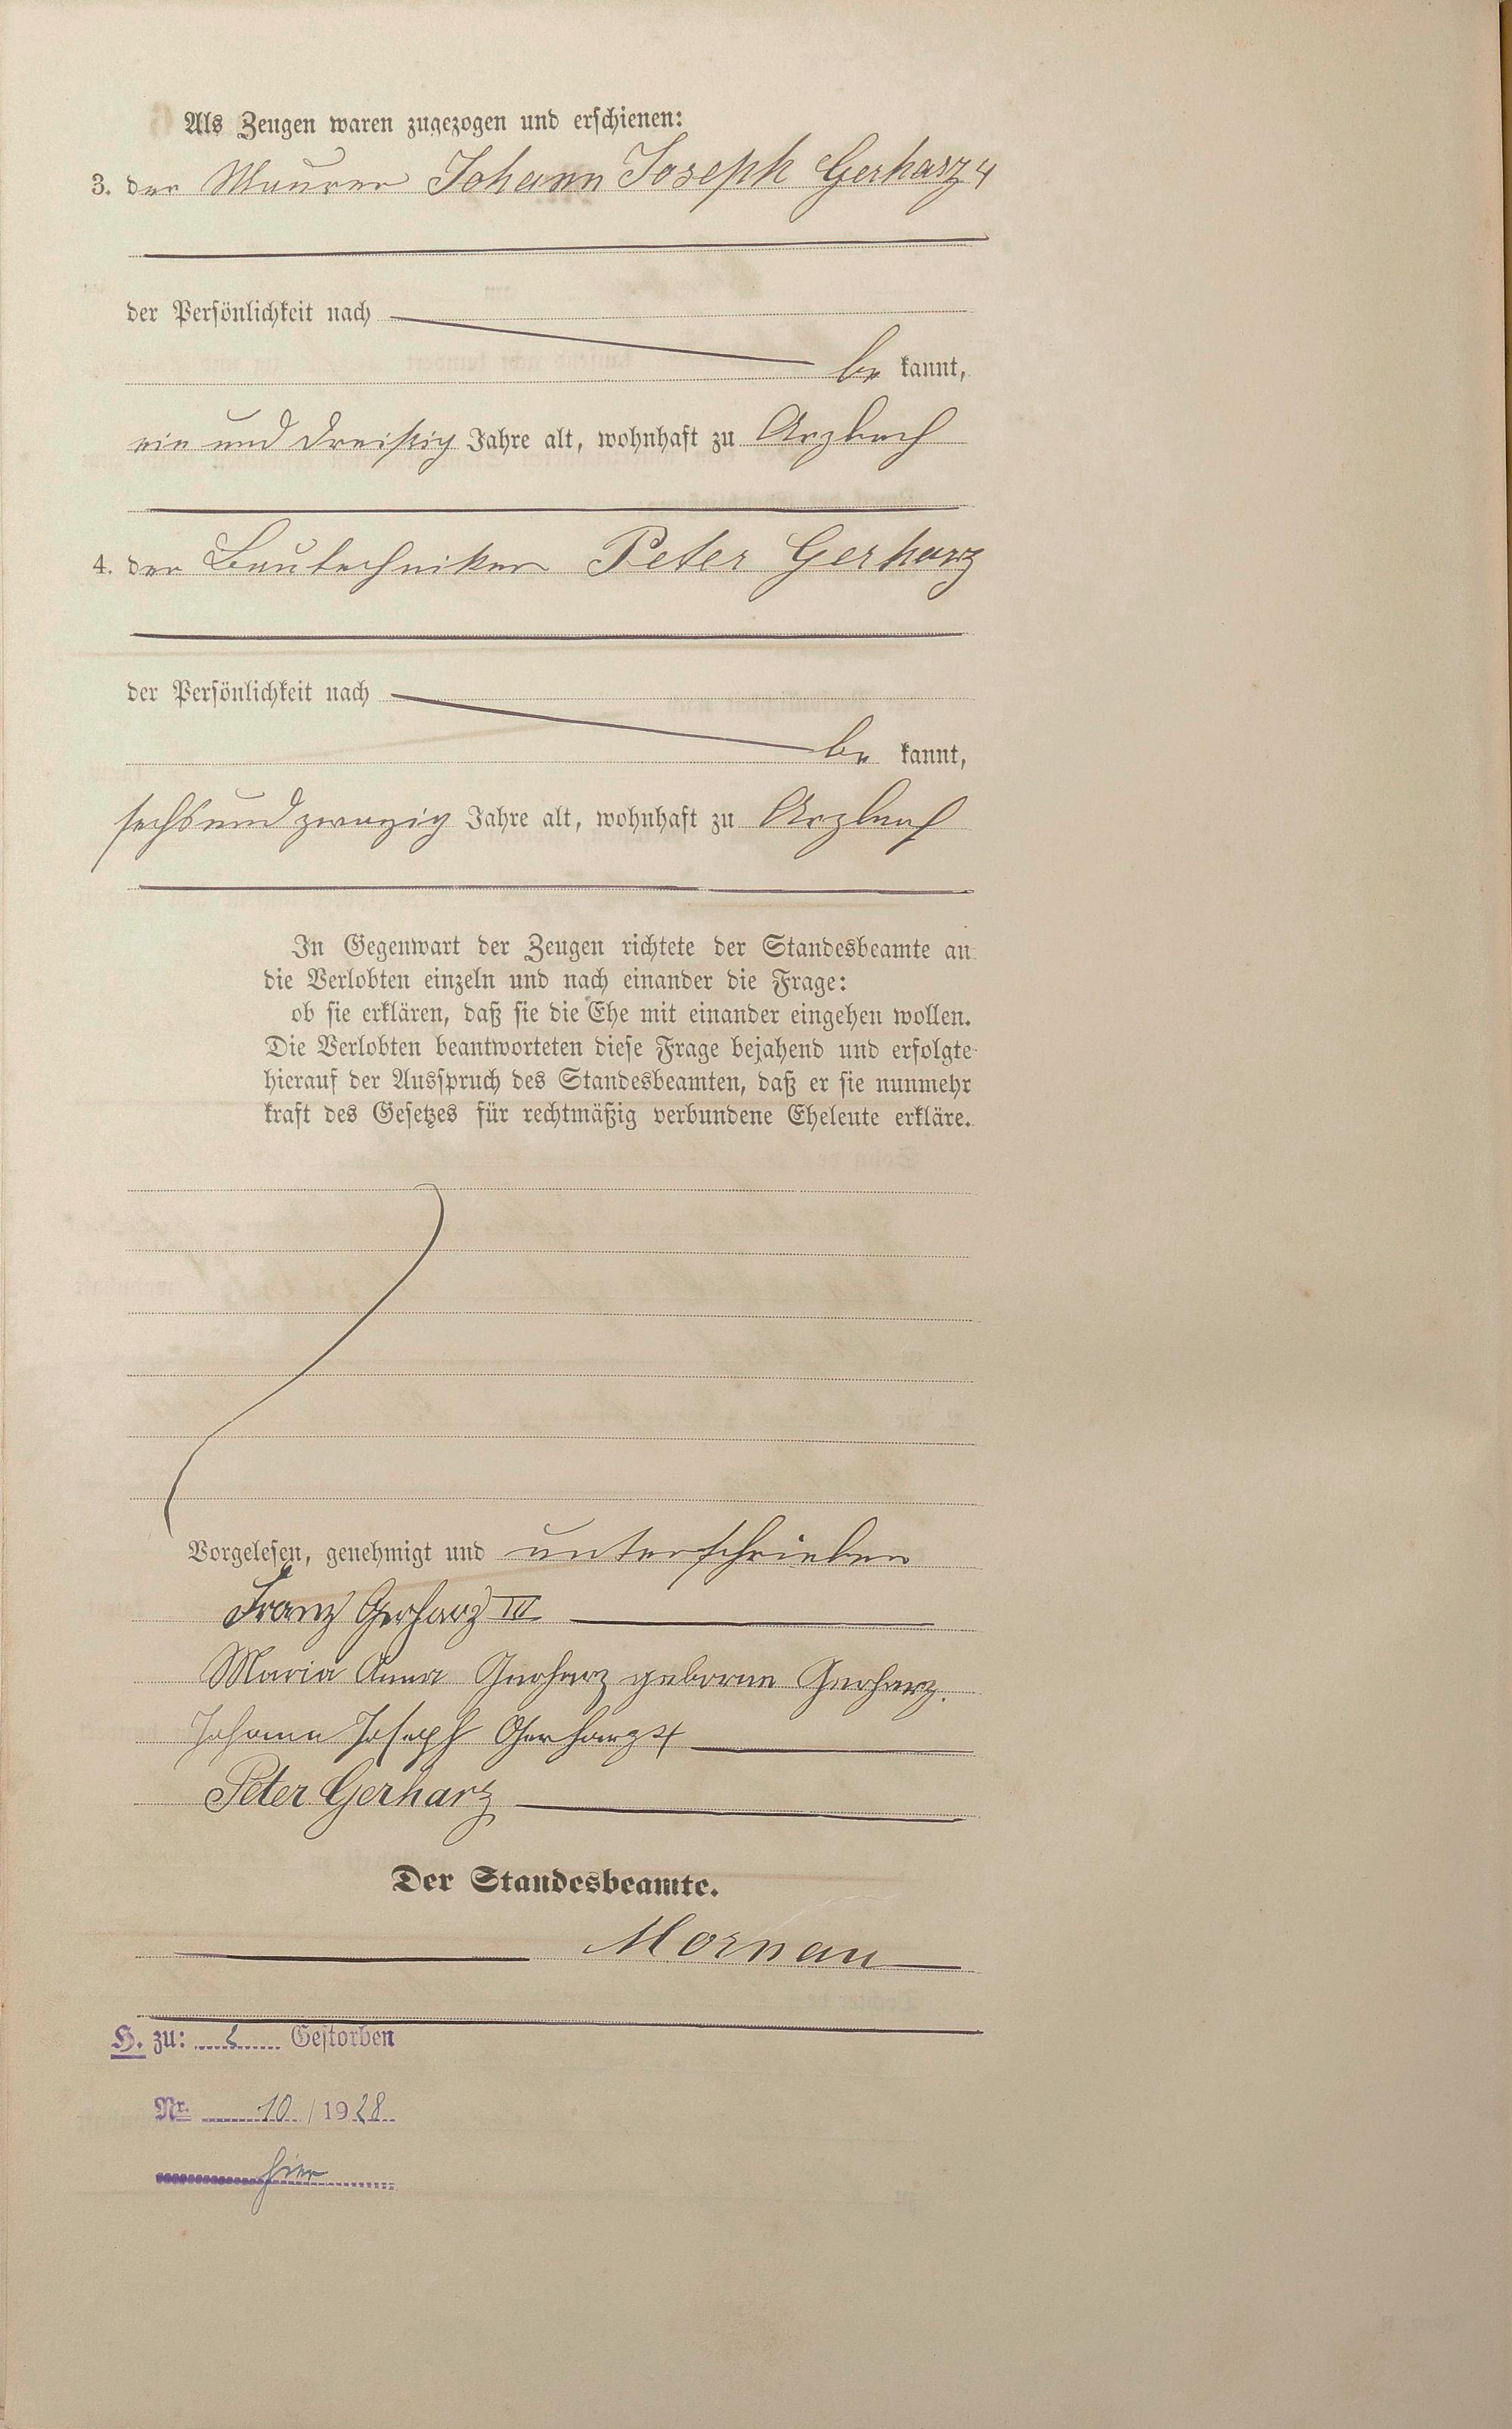 Als Zeugen waren zugezogen und erschienen:
3. der Maurer Johann Joseph Gerharz 4
der Persönlichkeit nach
be kannt,
ein und dreißig Jahre alt, wohnhaft zu Arzbach
4. der Bautechniker Peter Gerharz
der Persönlichkeit nach
be kannt,
sechsundzwanzig Jahre alt, wohnhaft zu Arzbach
In Gegenwart der Zeugen richtete der Standesbeamte an
die Verlobten einzeln und nach einander die Frage:
ob sie erklären, daß sie die Ehe mit einander eingehen wollen.
Die Verlobten beantworteten diese Frage bejahend und erfolgte
hierauf der Ausspruch des Standesbeamten, daß er sie nunmehr
kraft des Gesetzes für rechtmäßig verbundene Eheleute erkläre.
Vorgelesen, genehmigt und unterschrieben
Franz Gerharz III
Maria Anna Gerharz geborne Gerharz.
Johann Joseph Gerharz 4
Peter Gerharz
Der Standesbeamte.
Mornau
H. zu: Gestorben
Nr. 10/1928
hier